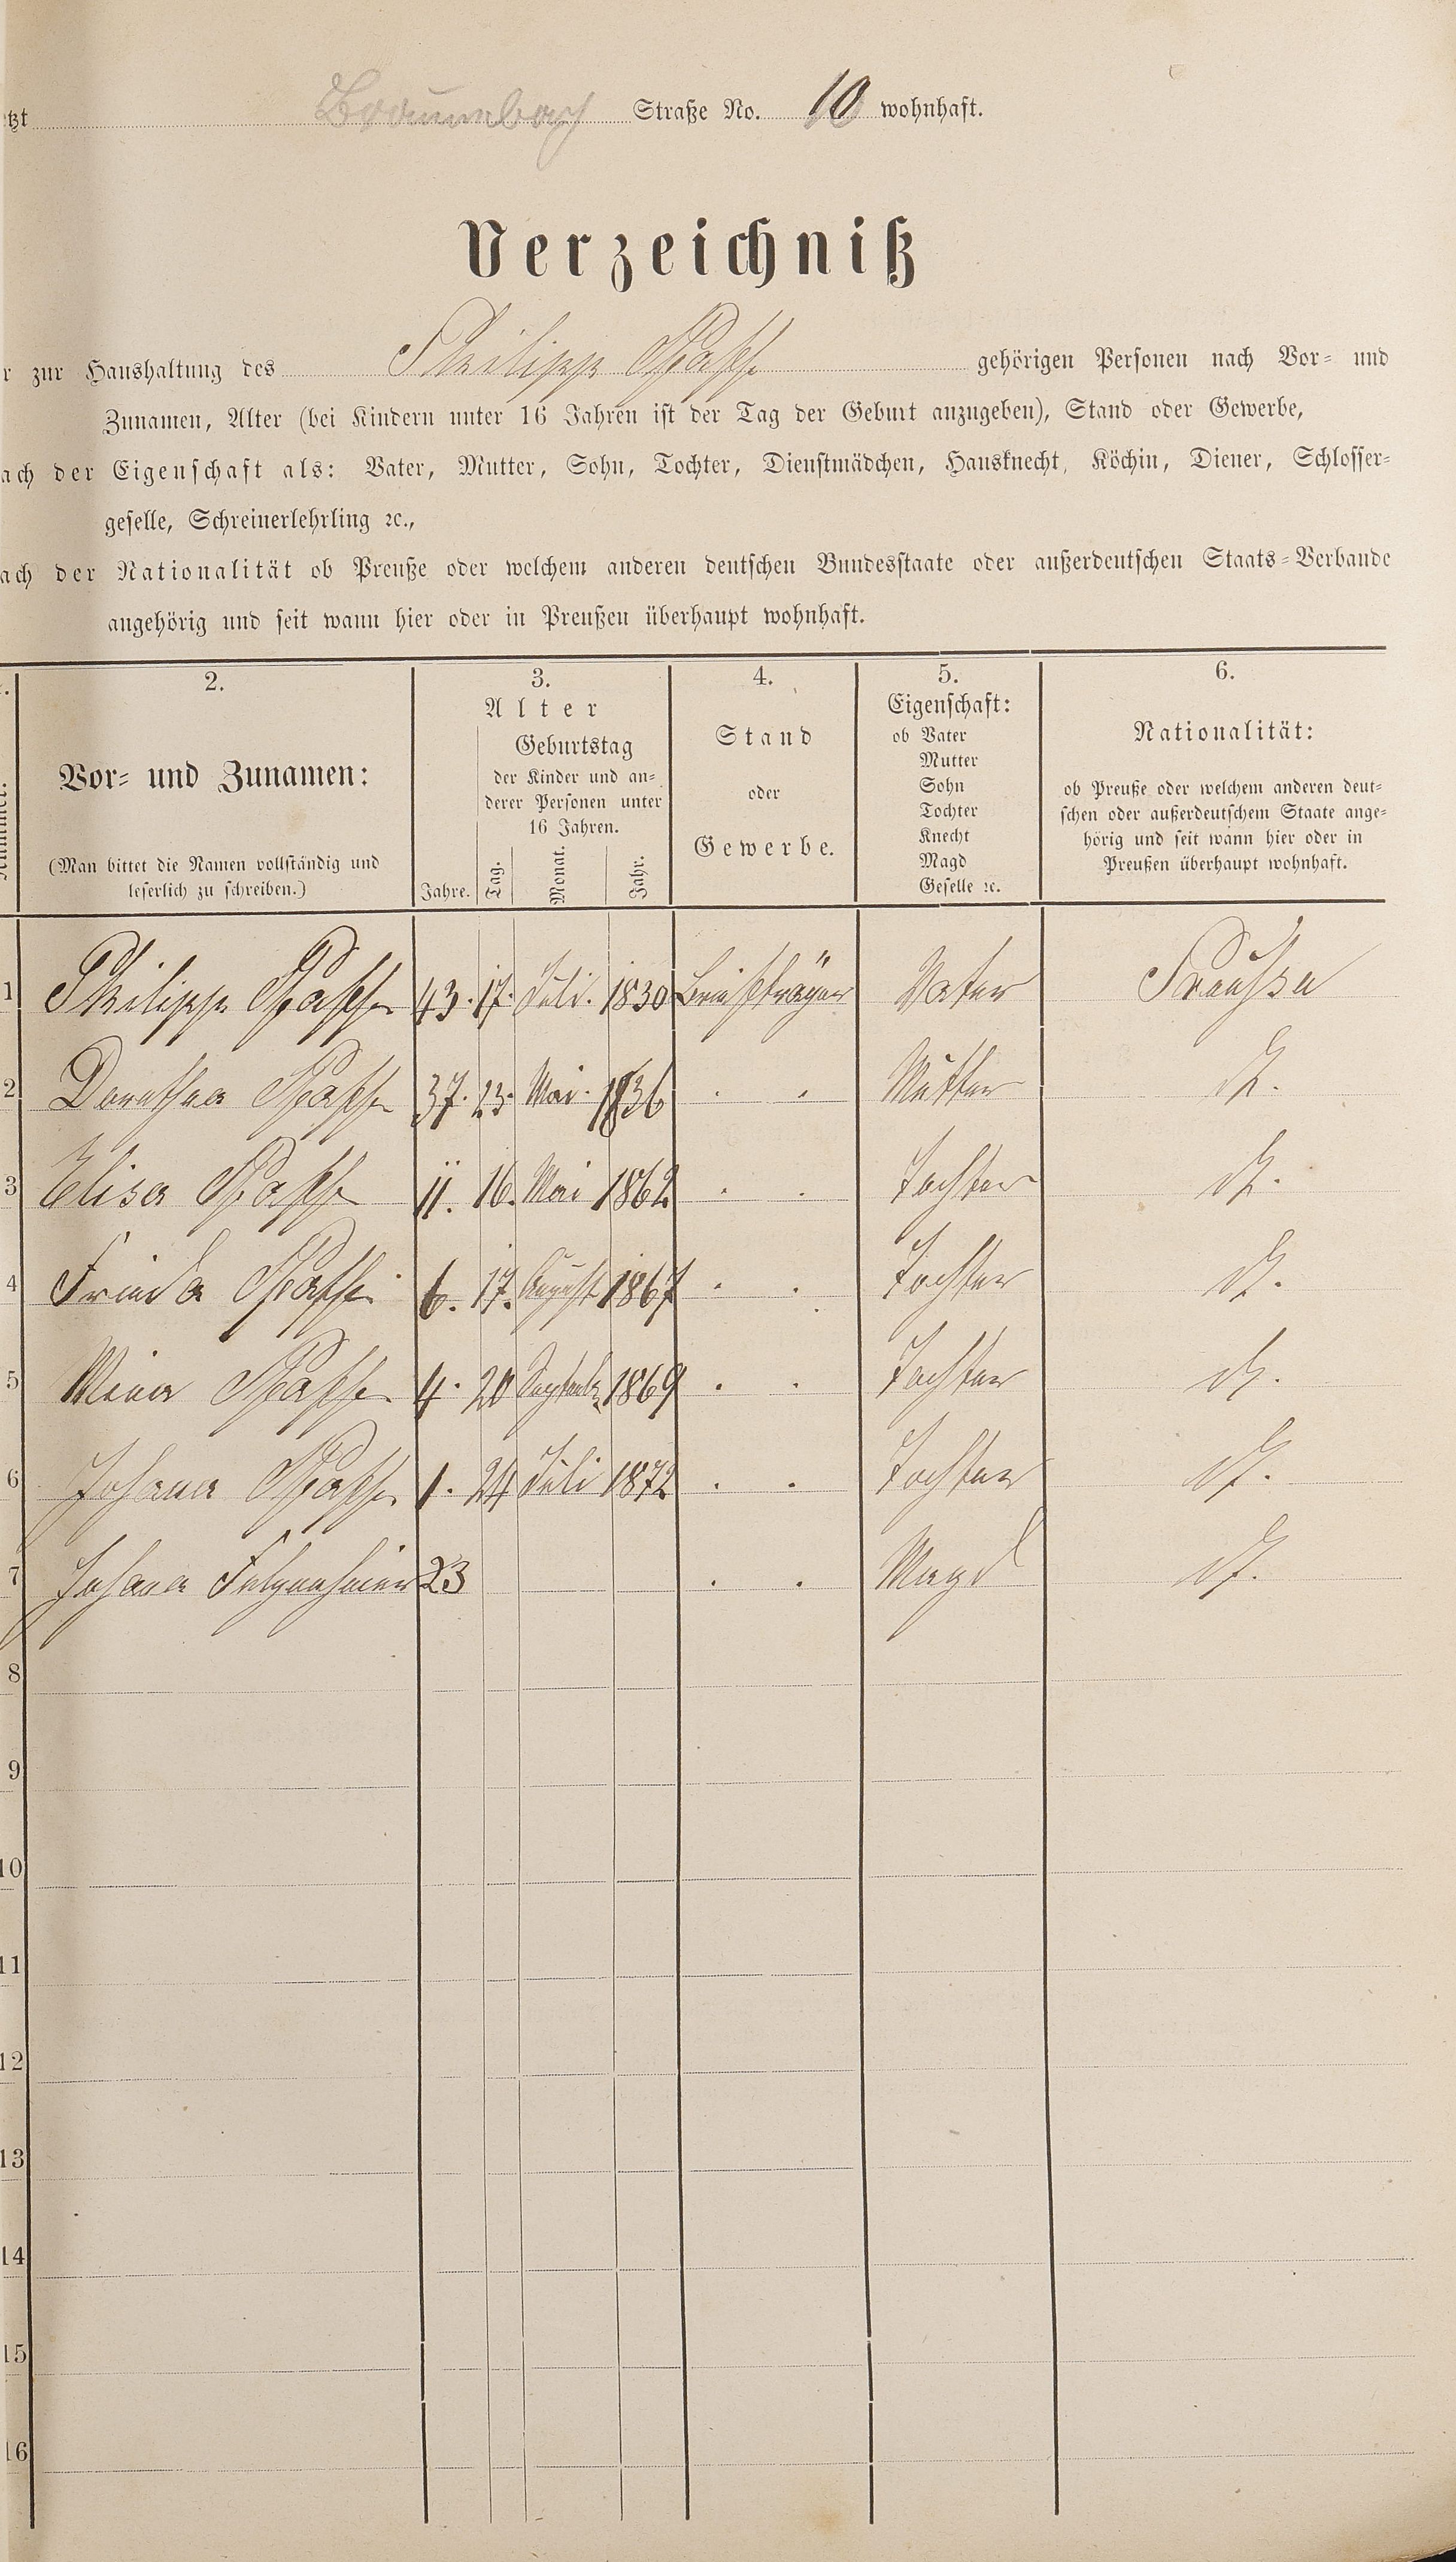 tzt Braumbach Straße No. 10 wohnhaft.
Verzeichniß
r zur Haushaltung des Philipp Pfaff gehörigen Personen nach Vor- und
Zunamen, Alter (bei Kindern unter 16 Jahren ist der Tag der Geburt anzugeben), Stand oder Gewerbe,
ach der Eigenschaft als: Vater, Mutter, Sohn, Tochter, Dienstmädchen, Hausknecht, Köchin, Diener, Schlosser-
geselle, Schreinerlehrling ꝛc.,
ach der Nationalität ob Preuße oder welchem anderen deutschen Bundesstaate oder außerdeutschen Staats-Verbande
angehörig und seit wann hier oder in Preußen überhaupt wohnhaft.
2.
Vor- und Zunamen:
(Man bittet die Namen vollständig und
leserlich zu schreiben.)
3.
Alter
Geburtstag
der Kinder und an-
derer Personen unter
16 Jahren.
Jahre. Tag. Monat. Jahr.
4.
Stand
oder
Gewerbe.
5.
Eigenschaft:
ob Vater
Mutter
Sohn
Tochter
Knecht
Magd
Geselle ꝛc.
6.
Nationalität:
ob Preuße oder welchem anderen deut-
schen oder außerdeutschem Staate ange-
hörig und seit wann hier oder in
Preußen überhaupt wohnhaft.
1 Philipp Pfaff 43. 17. Juli. 1830 Briefträger Vater Preuße
2 Dorothea Pfaff 37. 23. Mai. 1836 " " Mutter dt.
3 Elisa Pfaff 11. 16. Mai 1862 " " Tochter dt.
4 Frieda Pfaff 6. 17. August 1867 " " Tochter dt.
5 Mina Pfaff 4. 20 Septemb. 1869 " " Tochter dt.
6 Johana Pfaff 1. 24 Juli 1872 " " Tochter dt.
7 Johana 23 " " Magd dt.
8
9
10
11
12
13
14
15
16